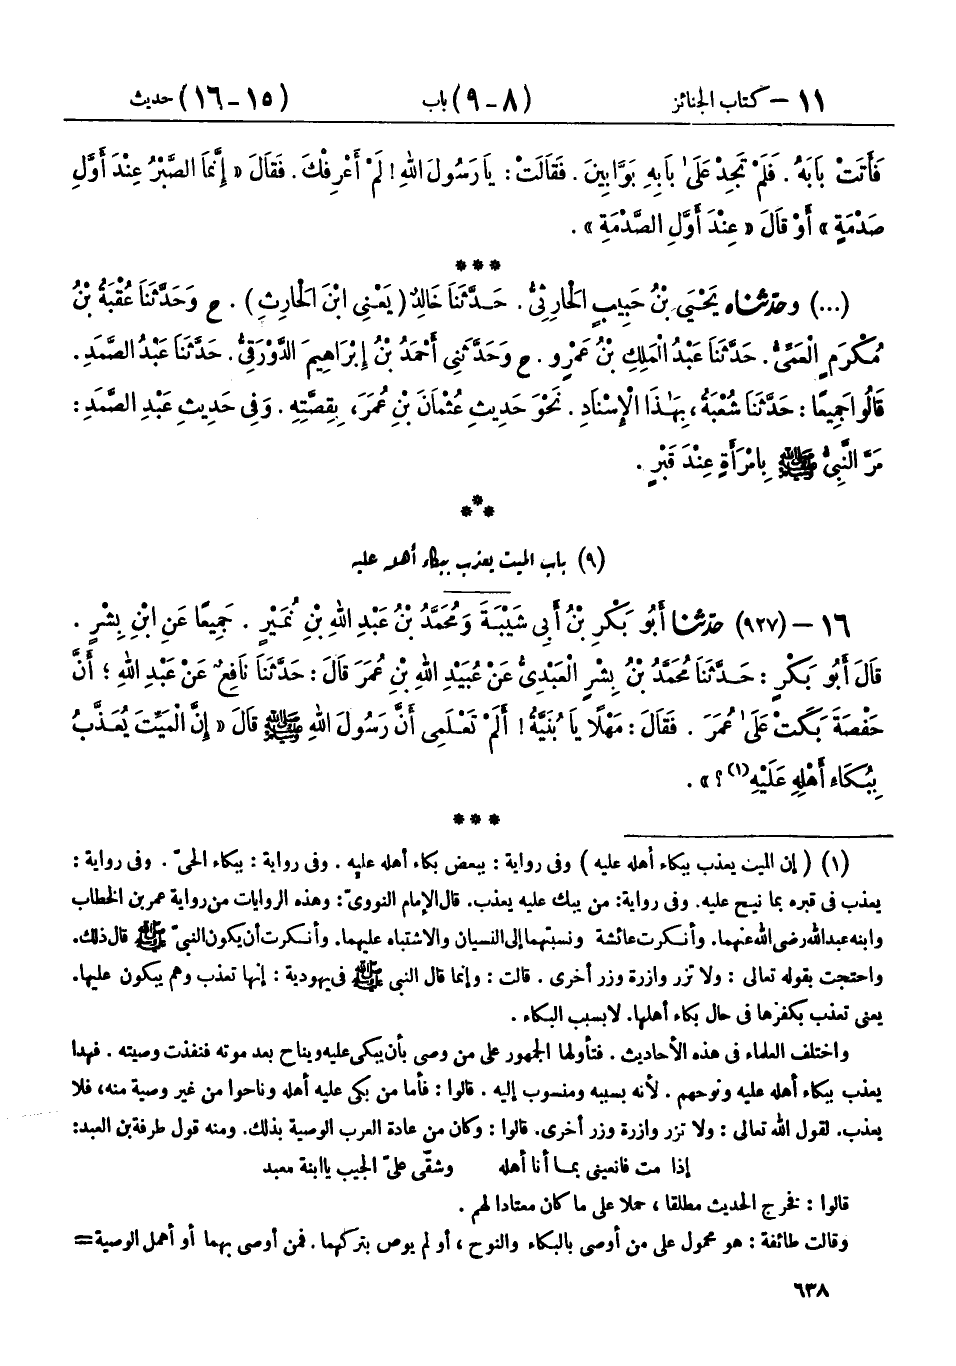 ١١ – كتاب الجنائز (٨ – ٩) باب (١٥ – ١٦) حديث
فَأَتَتْ بَابَهُ . فَلَمْ تَجِدْ عَلَىٰ بَابِهِ بَوَّابِينَ . فَقَالَتْ : يَا رَسُولَ اللهِ ! لَمْ أَعْرِفْكَ . فَقَالَ « إِنَّمَا الصَّبْرُ عِنْدَ أَوَّلِ
صَدْمَةٍ » أَوْ قَالَ « عِنْدَ أَوَّلِ الصَّدْمَةِ » .
***
(...) وحدّثناه يَحْيَى بْنُ حَبِيبٍ الْحَارِثِىُّ . حَدَّثَنَا خَالِدٌ ( يَعْنِى ابْنَ الْحَارِثِ ) . ح وَحَدَّثَنَا عُقْبَةُ بْنُ
مُكْرَمٍ الْعَمِّىُّ . حَدَّثَنَا عَبْدُ الْمَلِكِ بْنُ عَمْرٍو . ح وَحَدَّثَنِى أَحْمَدُ بْنُ إِبْرَاهِيمَ الدَّوْرَقِىُّ . حَدَّثَنَا عَبْدُ الصَّمَدِ .
قَالُوا جَمِيعًا : حَدَّثَنَا شُعْبَةُ ، بِهَـٰذَا الْإِسْنَادِ . نَحْوَ حَدِيثِ عُثْمَانَ بْنِ عُمَرَ ، بِقِصَّتِهِ . وَفِى حَدِيثِ عَبْدِ الصَّمَدِ :
مَرَّ النَّبِىُّ ﷺ بِامْرَأَةٍ عِنْدَ قَبْرٍ .
***
(٩) باب الميت يعذب ببكاء أهله عليه
١٦ – (٩٢٧) حدّثنا أَبُو بَكْرِ بْنُ أَبِى شَيْبَةَ وَمُحَمَّدُ بْنُ عَبْدِ اللهِ بْنِ نُمَيْرٍ . جَمِيعًا عَنِ ابْنِ بِشْرٍ .
قَالَ أَبُو بَكْرٍ : حَدَّثَنَا مُحَمَّدُ بْنُ بِشْرٍ الْعَبْدِىُّ عَنْ عُبَيْدِ اللهِ بْنِ عُمَرَ قَالَ : حَدَّثَنَا نَافِعٌ عَنْ عَبْدِ اللهِ ؛ أَنَّ
حَفْصَةَ بَكَتْ عَلَىٰ عُمَرَ . فَقَالَ : مَهْلًا يَا بُنَيَّةُ ! أَلَمْ تَعْلَمِى أَنَّ رَسُولَ اللهِ ﷺ قَالَ « إِنَّ الْمَيِّتَ يُعَذَّبُ
بِبُكَاءِ أَهْلِهِ عَلَيْهِ(١) ؟ » .
***
(١) ( إن الميت يعذب ببكاء أهله عليه ) وفى رواية : ببعض بكاء أهله عليه . وفى رواية : ببكاء الحىّ . وفى رواية :
يعذب فى قبره بما نيح عليه . وفى رواية : من يبك عليه يعذب . قال الإمام النووىّ : وهذه الروايات من رواية عمر بن الخطاب
وابنه عبدالله رضى الله عنهما . وأنكرت عائشة ونسبتهما إلى النسيان والاشتباه عليهما . وأنكرت أن يكون النبىّ ﷺ قال ذلك .
واحتجت بقوله تعالى : ولا تزر وازرة وزر أخرى . قالت : وإنما قال النبى ﷺ فى يهودية : إنها تعذب وهم يبكون عليها .
يعنى تعذب بكفرها فى حال بكاء أهلها . لا بسبب البكاء .
واختلف العلماء فى هذه الأحاديث . فتأولها الجمهور على من وصى بأن يبكى عليه ويناح بعد موته فنفذت وصيته . فهذا
يعذب ببكاء أهله عليه ونوحهم . لأنه بسببه ومنسوب إليه . قالوا : فأما من بكى عليه أهله وناحوا من غير وصية منه ، فلا
يعذب . لقول الله تعالى : ولا تزر وازرة وزر أخرى . قالوا : وكان من عادة العرب الوصية بذلك . ومنه قول طرفة بن العبد :
إذا مت فانعينى بما أنا أهله وشقّى علىّ الجيب يا ابنة معبد
قالوا : فخرج الحديث مطلقا ، حملا على ما كان معتادا لهم .
وقالت طائفة : هو محمول على من أوصى بالبكاء والنوح ، أو لم يوص بتركهما . فمن أوصى بهما أو أهمل الوصية =
٦٣٨